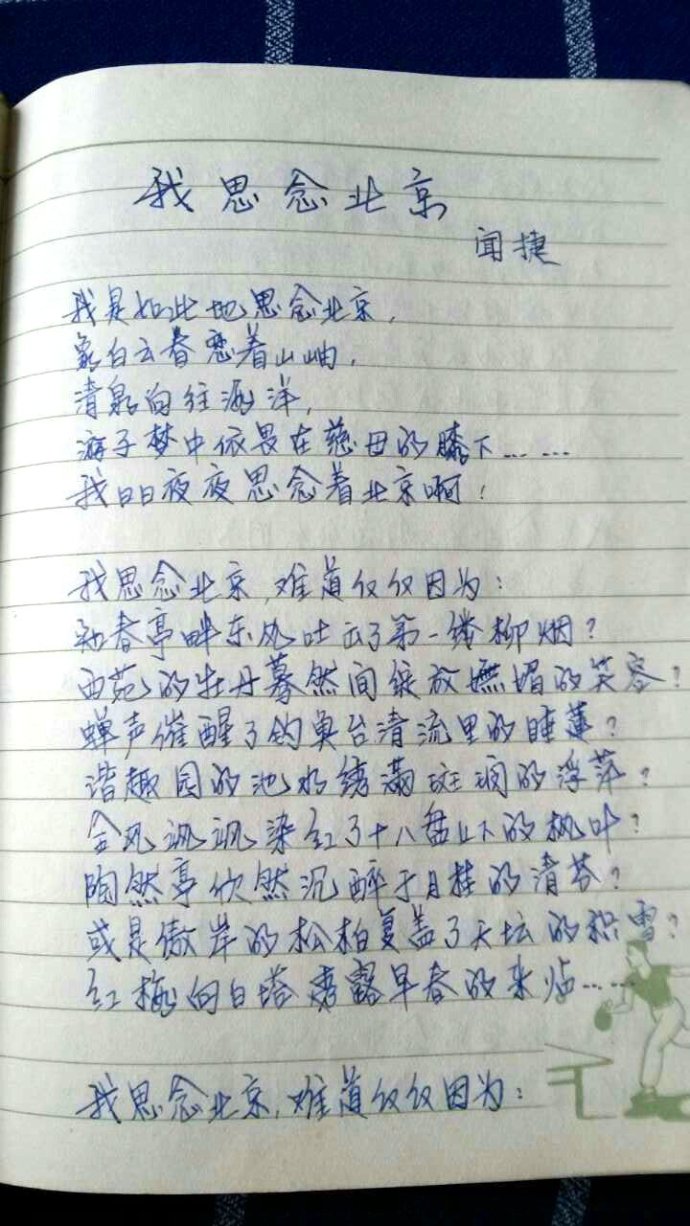 我思念北京
闻捷
我是如此地思念北京,
象白云眷恋着山岫,
清泉向往海洋,
游子梦中依畏在慈母的膝下……
我日日夜夜思念着北京啊!
我思念北京,难道仅仅因为:
知春亭畔东风吐出了第一缕柳烟?
西苑的牡丹蓦然间绽放妩媚的笑容?
蝉声催醒了钓鱼台清流里的睡莲?
谐趣园的池水绣满斑斓的浮萍?
金风飒飒染红了十八盘上下的枫叶?
陶然亭欣然沉醉于月桂的清芬?
或是傲岸的松柏复盖了天坛的积雪?
红梅向白塔透露早春的来临……
我思念北京,难道仅仅因为: